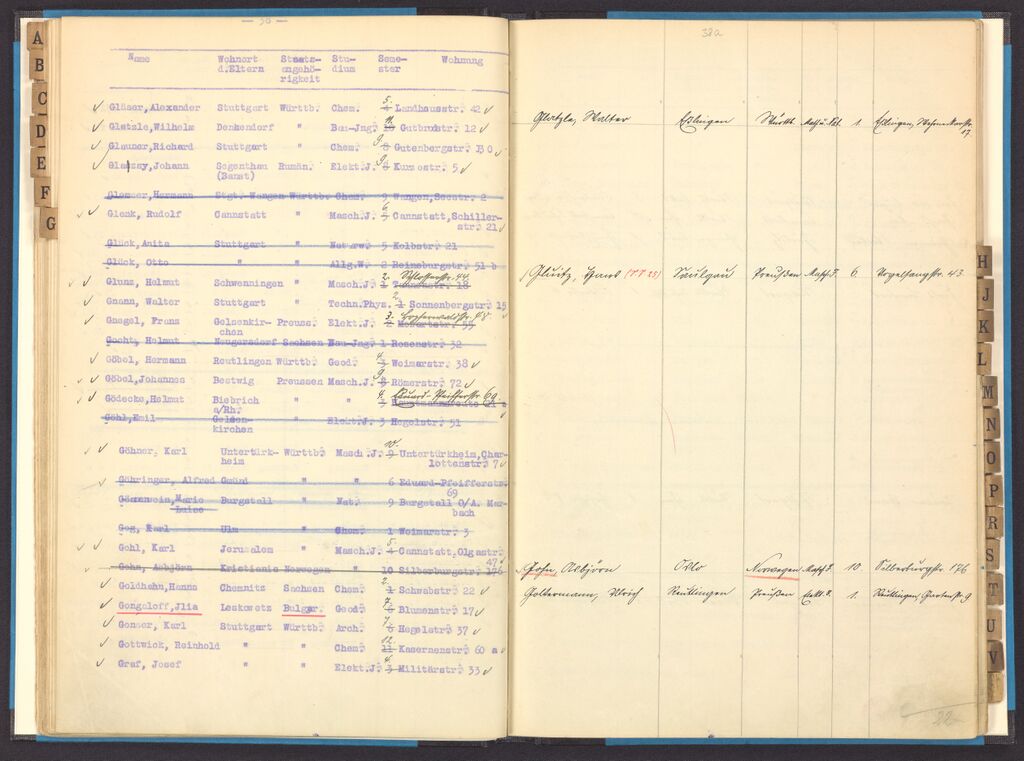 — 38 —
Name Wohnort d.Eltern Staatsangehörigkeit Studium Semester Wohnung
Gläser, Alexander Stuttgart Württb. Chem. 5. 4 Landhausstr. 42
Glatzle, Wilhelm Denkendorf " Bau-Jng. 11. 10 Gutbrodstr. 12
Glauner, Richard Stuttgart " Chem. 9. 8 Gutenbergstr. 130
Johann Segenthau Rumän. Elekt.J. 9. 8 Kurzestr. 5
(Banat)
Hermann Stgt.-Wangen Württb. Chem. 9 Wangen, Seestr. 2
Glenk, Rudolf Cannstatt " Masch.J. 6. Cannstatt, Schiller-
str. 21
Glück, Anita Stuttgart " Naturw. 5 Kolbstr. 21
Glück, Otto " " Allg.W. 2 Reinsburgstr. 51 b
Glunz, Helmut Schwenningen " Masch.J. 2. 1 Schloßstr. 44 18
Gnann, Walter Stuttgart " Techn.Phys. 2. 1 Sonnenbergstr. 15
Gnegel, Franz Gelsenkir- Preuss. Elekt.J. 3. 2 48 Mozartstr. 55
chen
Helmut Neugersdorf Sachsen Bau-Jng. 1 Rosenstr. 32
Göbel, Hermann Reutlingen Württb. Geod. 4. 3 Weimarstr. 38
Göbel, Johannes Bestwig Preussen Masch.J. 9. 8 Römerstr. 72
Gödecke, Helmut Biebrich " " 4. 3 Eduard-Pfeifferstr. 69
a/Rh.
Göhl, Emil Gelsen- Elekt.J. 3 Hegelstr. 51
kirchen
Göhner, Karl Untertürk- Württb. Masch.J. 10. 9 Untertürkheim, Char-
heim lottenstr. 7
Göhringer, Alfred Gmünd " " 6 Eduard-Pfeifferstr.
69
Marie Burgstall " Nat. 9 Burgstall O/A. Mar-
Luise bach
Gog, Karl Ulm " Chem. 1 Weimarstr. 3
Gohl, Karl Jerusalem " Masch.J. 5. 4 Cannstatt, Olgastr.
47
Gohn, Asbjörn Kristiania Norwegen " 10 Silberburgstr. 176
Goldhahn, Hanns Chemnitz Sachsen Chem. 2. 1 Schwabstr. 22
Gongeloff, Jlia Leskowetz Bulgar. Geod. 7. 6 Blumenstr. 17
Gonser, Karl Stuttgart Württb. Arch. 7. 6 Hegelstr. 37
Gottwick, Reinhold " " Chem. 12. 11 Kasernenstr. 60 a
Graf, Josef " " Elekt.J. 4. 3 Militärstr. 33
A
B
C
D
E
F
G
38a
Glatzle, Walter Eßlingen Württ. 1. Eßlingen,
17
Hans Saulgau Preußen Masch.J. 6. Vogelsangstr. 43
Gohn, Asbjörn Oslo Norwegen Masch.J. 10. Silberburgstr. 176
Goltermann, Ulrich Reutlingen Preußen Elekt.J. 1. Reutlingen, Gartenstr. 9
H
J
K
L
M
N
O
P
R
S
T
U
V